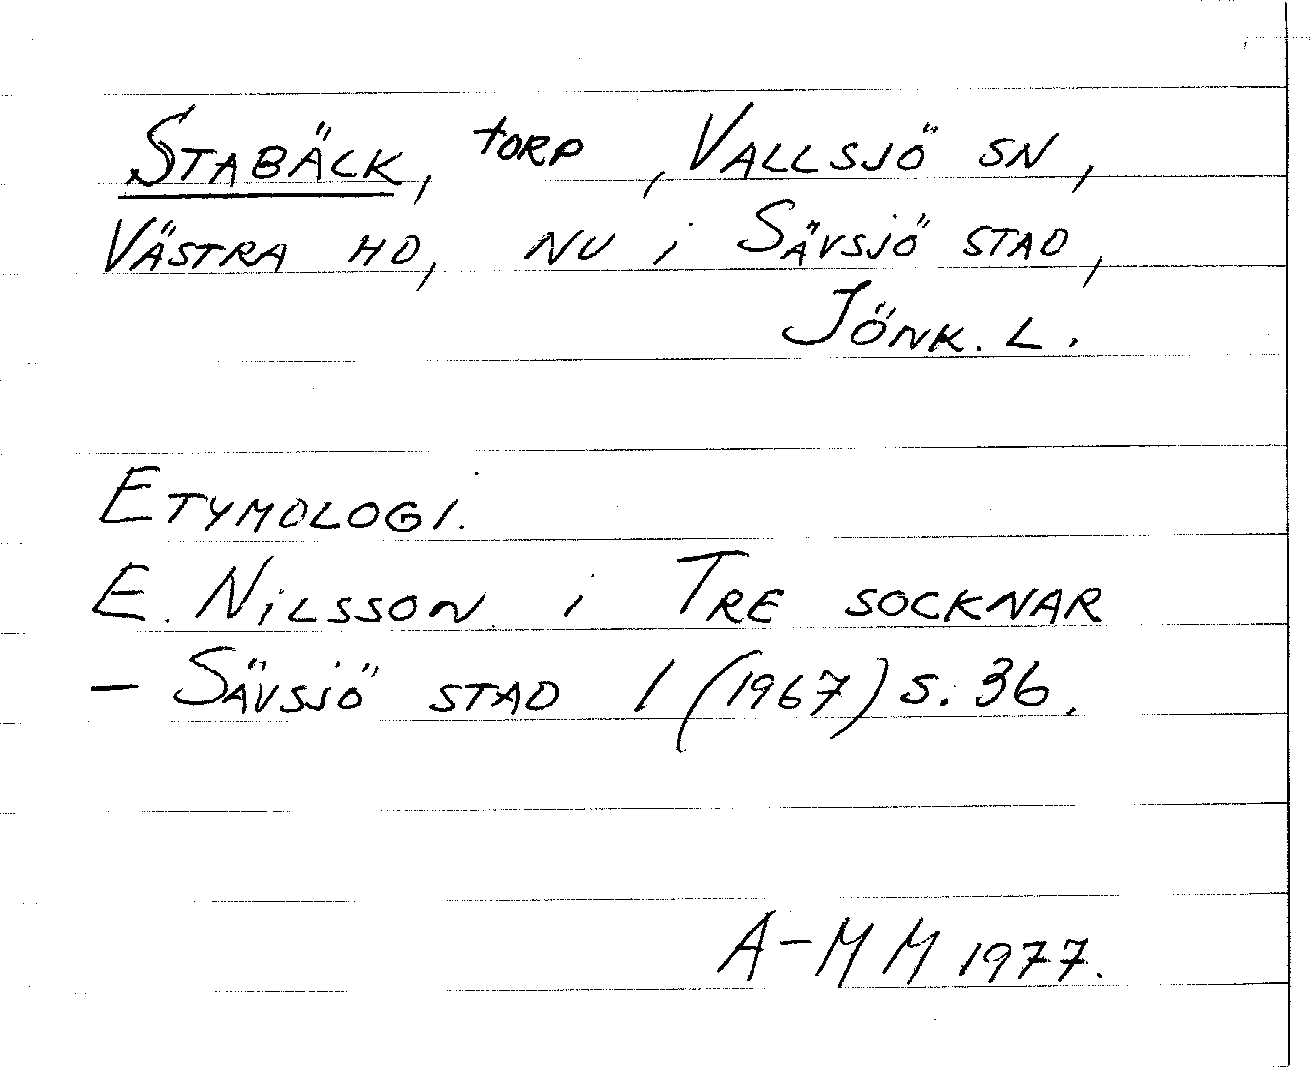 STABÄCK, TORP, VALLSJÖ SN,
VÄSTRA HD, NU i SÄVSJÖ STAD,
JÖNK. L.
ETYMOLOGI.
E. NILSSON i TRE SOCKNAR
- SÄVSJÖ STAD 1 (1967) S. 36.
A-M M 1977.